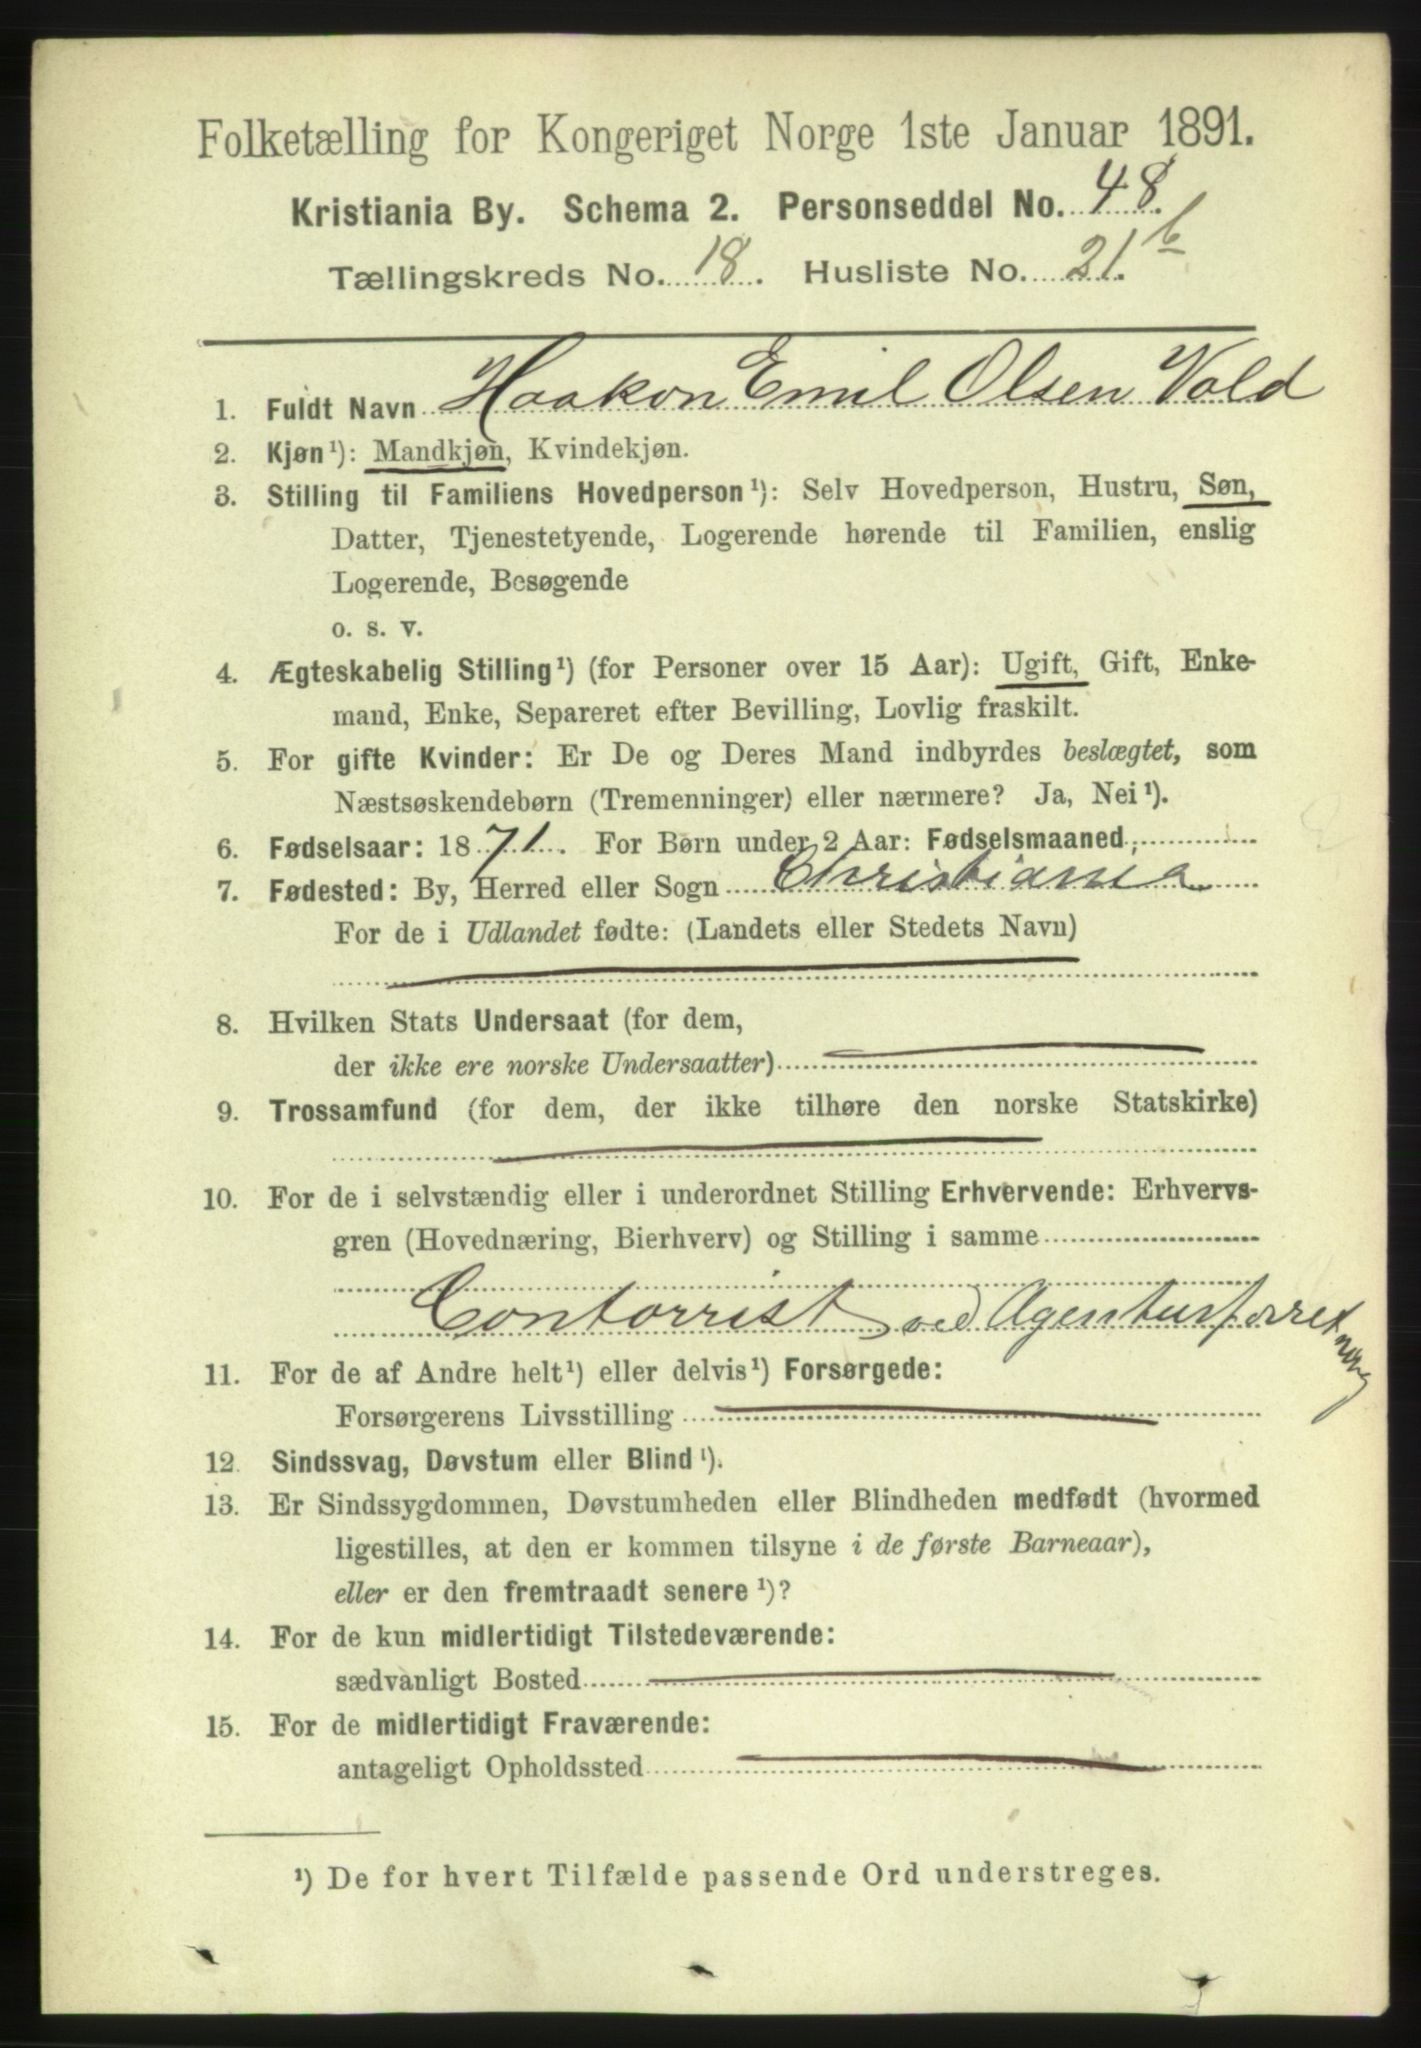 Folketælling for Kongeriget Norge 1ste Januar 1891.
Kristiania By. Schema 2. Personseddel No. 48.
Tællingskreds No. 18. Husliste No. 21.b
1. Fuldt Navn Haakon Emil Olsen Vold
2. Kjøn¹): Mandkjøn, Kvindekjøn.
3. Stilling til Familiens Hovedperson¹): Selv Hovedperson, Hustru, Søn,
Datter, Tjenestetyende, Logerende hørende til Familien, enslig
Logerende, Besøgende
o. s. v.
4. Ægteskabelig Stilling¹) (for Personer over 15 Aar): Ugift, Gift, Enke-
mand, Enke, Separeret efter Bevilling, Lovlig fraskilt.
5. For gifte Kvinder: Er De og Deres Mand indbyrdes beslægtet, som
Næstsøskendebørn (Tremenninger) eller nærmere? Ja, Nei¹).
6. Fødselsaar: 1871. For Børn under 2 Aar: Fødselsmaaned,
7. Fødested: By, Herred eller Sogn Christiania
For de i Udlandet fødte: (Landets eller Stedets Navn)
8. Hvilken Stats Undersaat (for dem,
der ikke ere norske Undersaatter)
9. Trossamfund (for dem, der ikke tilhøre den norske Statskirke)
10. For de i selvstændig eller i underordnet Stilling Erhvervende: Erhvervs-
gren (Hovednæring, Bierhverv) og Stilling i samme
Contorrist ved Agenturforretning
11. For de af Andre helt¹) eller delvis¹) Forsørgede:
Forsørgerens Livsstilling
12. Sindssvag, Døvstum eller Blind¹).
13. Er Sindssygdommen, Døvstumheden eller Blindheden medfødt (hvormed
ligestilles, at den er kommen tilsyne i de første Barneaar),
eller er den fremtraadt senere¹)?
14. For de kun midlertidigt Tilstedeværende:
sædvanligt Bosted
15. For de midlertidigt Fraværende:
antageligt Opholdssted
¹) De for hvert Tilfælde passende Ord understreges.